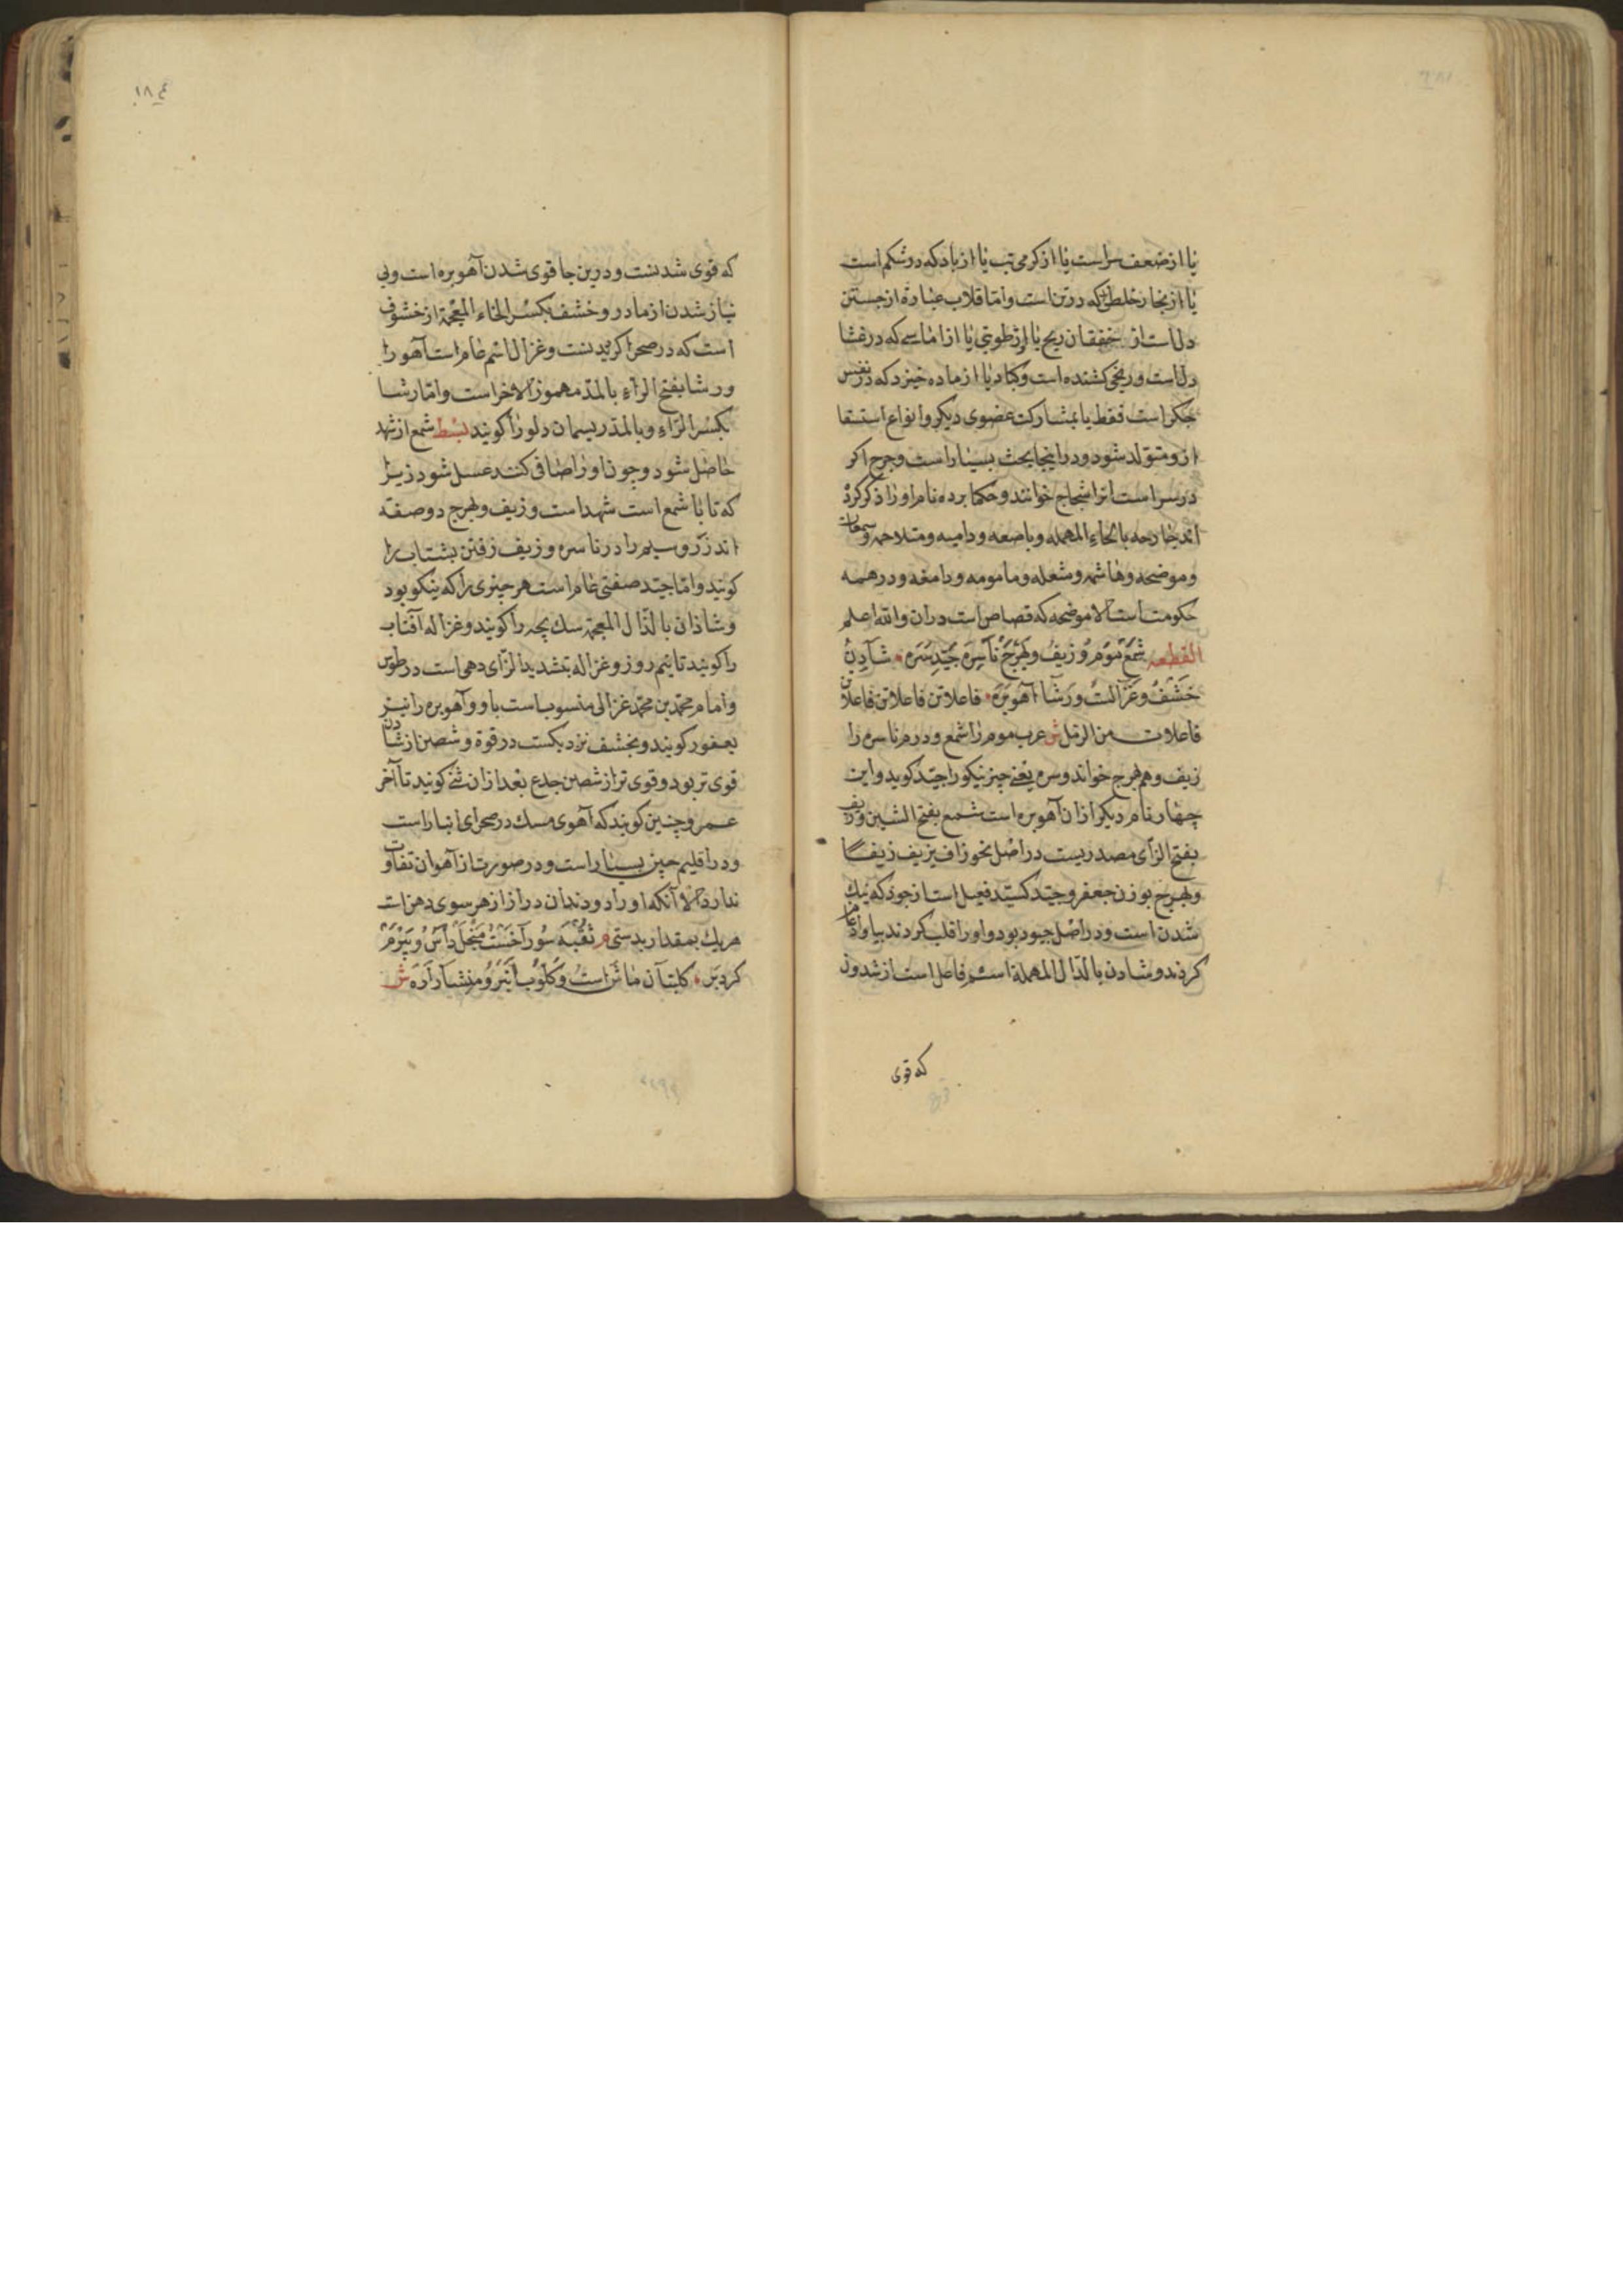 یا از ضعف سراست یا از کرمی تب یا از بادکه درشکم است
یا از بخار خلطی که درتن است واما قلاب عباره از جستن
دل است از خفقان ریح یا از رطوبتی یا از اماسی که درغشا
دل است ورنجی کشنده است وکباد یا از ماده خیزد که در نفس
جکراست فقط یا بمشارکت عضوی دیکر وانواع استسقا
ازو متولد شود ودراینجا بحث بسیاراست وجرح اکر
درسراست انرا شجاج خوانند وحکما برده نام اورا ذکرکرد
اند خارحه بالحاء المهمله وباضعه ودامیه ومتلاحمه وسمحاق
وموضحه وهاشمه ومنقله ومامومه ودامغه ودرهمه
حکومت است الا موضحه که قصاص است دران والله اعلم
القطعه شمع موم وزیف وبهرج ناسره جید سره شادن
خشف وغزالست ورشا آهوبره فاعلاتن فاعلاتن فاعلاتن
فاعلات من الرمل ش عرب موم را شمع ودرم ناسره را
زیف وهم بهرج خواند وسره یعنی چیز نیکو را جید کوید واین
چهار نام دیکر ازان آهوبره است شمع بفتح الشین وزیف
بفتح الزای مصدریست دراصل نحو زاف یزیف زیفا
وبهرج بوزن جعفر وجید کسید فیعل است ازجود که نیک
شدن است ودراصل جیود بود واو را قلب کردند بیا وادغام
کردند وشادن بالدال المهملة اسم فاعل است از شدون
که قوی
١٨٤
که قوی شدنست ودرین جا قوی شدن آهوبره است وبی
نیاز شدن از مادر وخشف بکسر الخاء المعجمة از خشوف
است که درصحرا کردیدنست وغزال اسم عام است آهو را
ورشا بفتح الراء بالمد مهموز الاخراست واما رشا
بکسر الراء وبالمد ریسمان دلو را کویند بسط شمع ازشهد
حاصل شود وچون اورا صافی کنند عسل شود زیرا
که تا با شمع است شهداست وزیف وبهرج دوصفة
اند زر وسیم را در ناسره وزیف رفتن بشتاب را
کویند واما جید صفتی عام است هرچیزی را که نیکو بود
وشاذان بالذال المعجمة سک بچه را کویند وغزاله آفتاب
را کویند تا نیم روز وغزاله بتشدید الزای دهی است درطوس
وامام محمد بن محمد غزالی منسوب است باو وآهوبره را نیز
یعفور کویند وبخشف نزدیکست درقوة وشصن از شادن
قوی تر بود وقوی تر از شصن جدع بعد ازان ثنی کویند تا آخر
عمر وچنین کویند که آهوی مسک درصحرای انبار است
ودر اقلیم چین بسیار است ودرصورت از آهوان تفاوت
ندارد الا آنکه اورا دو دندان دراز از هرسوی دهن است
هریک بمقدار بدستی م ثقبه سوراخست منجل داس ومبرم
کردبر کلبتان ماش است وکلوب انبر ومنشار اره ش